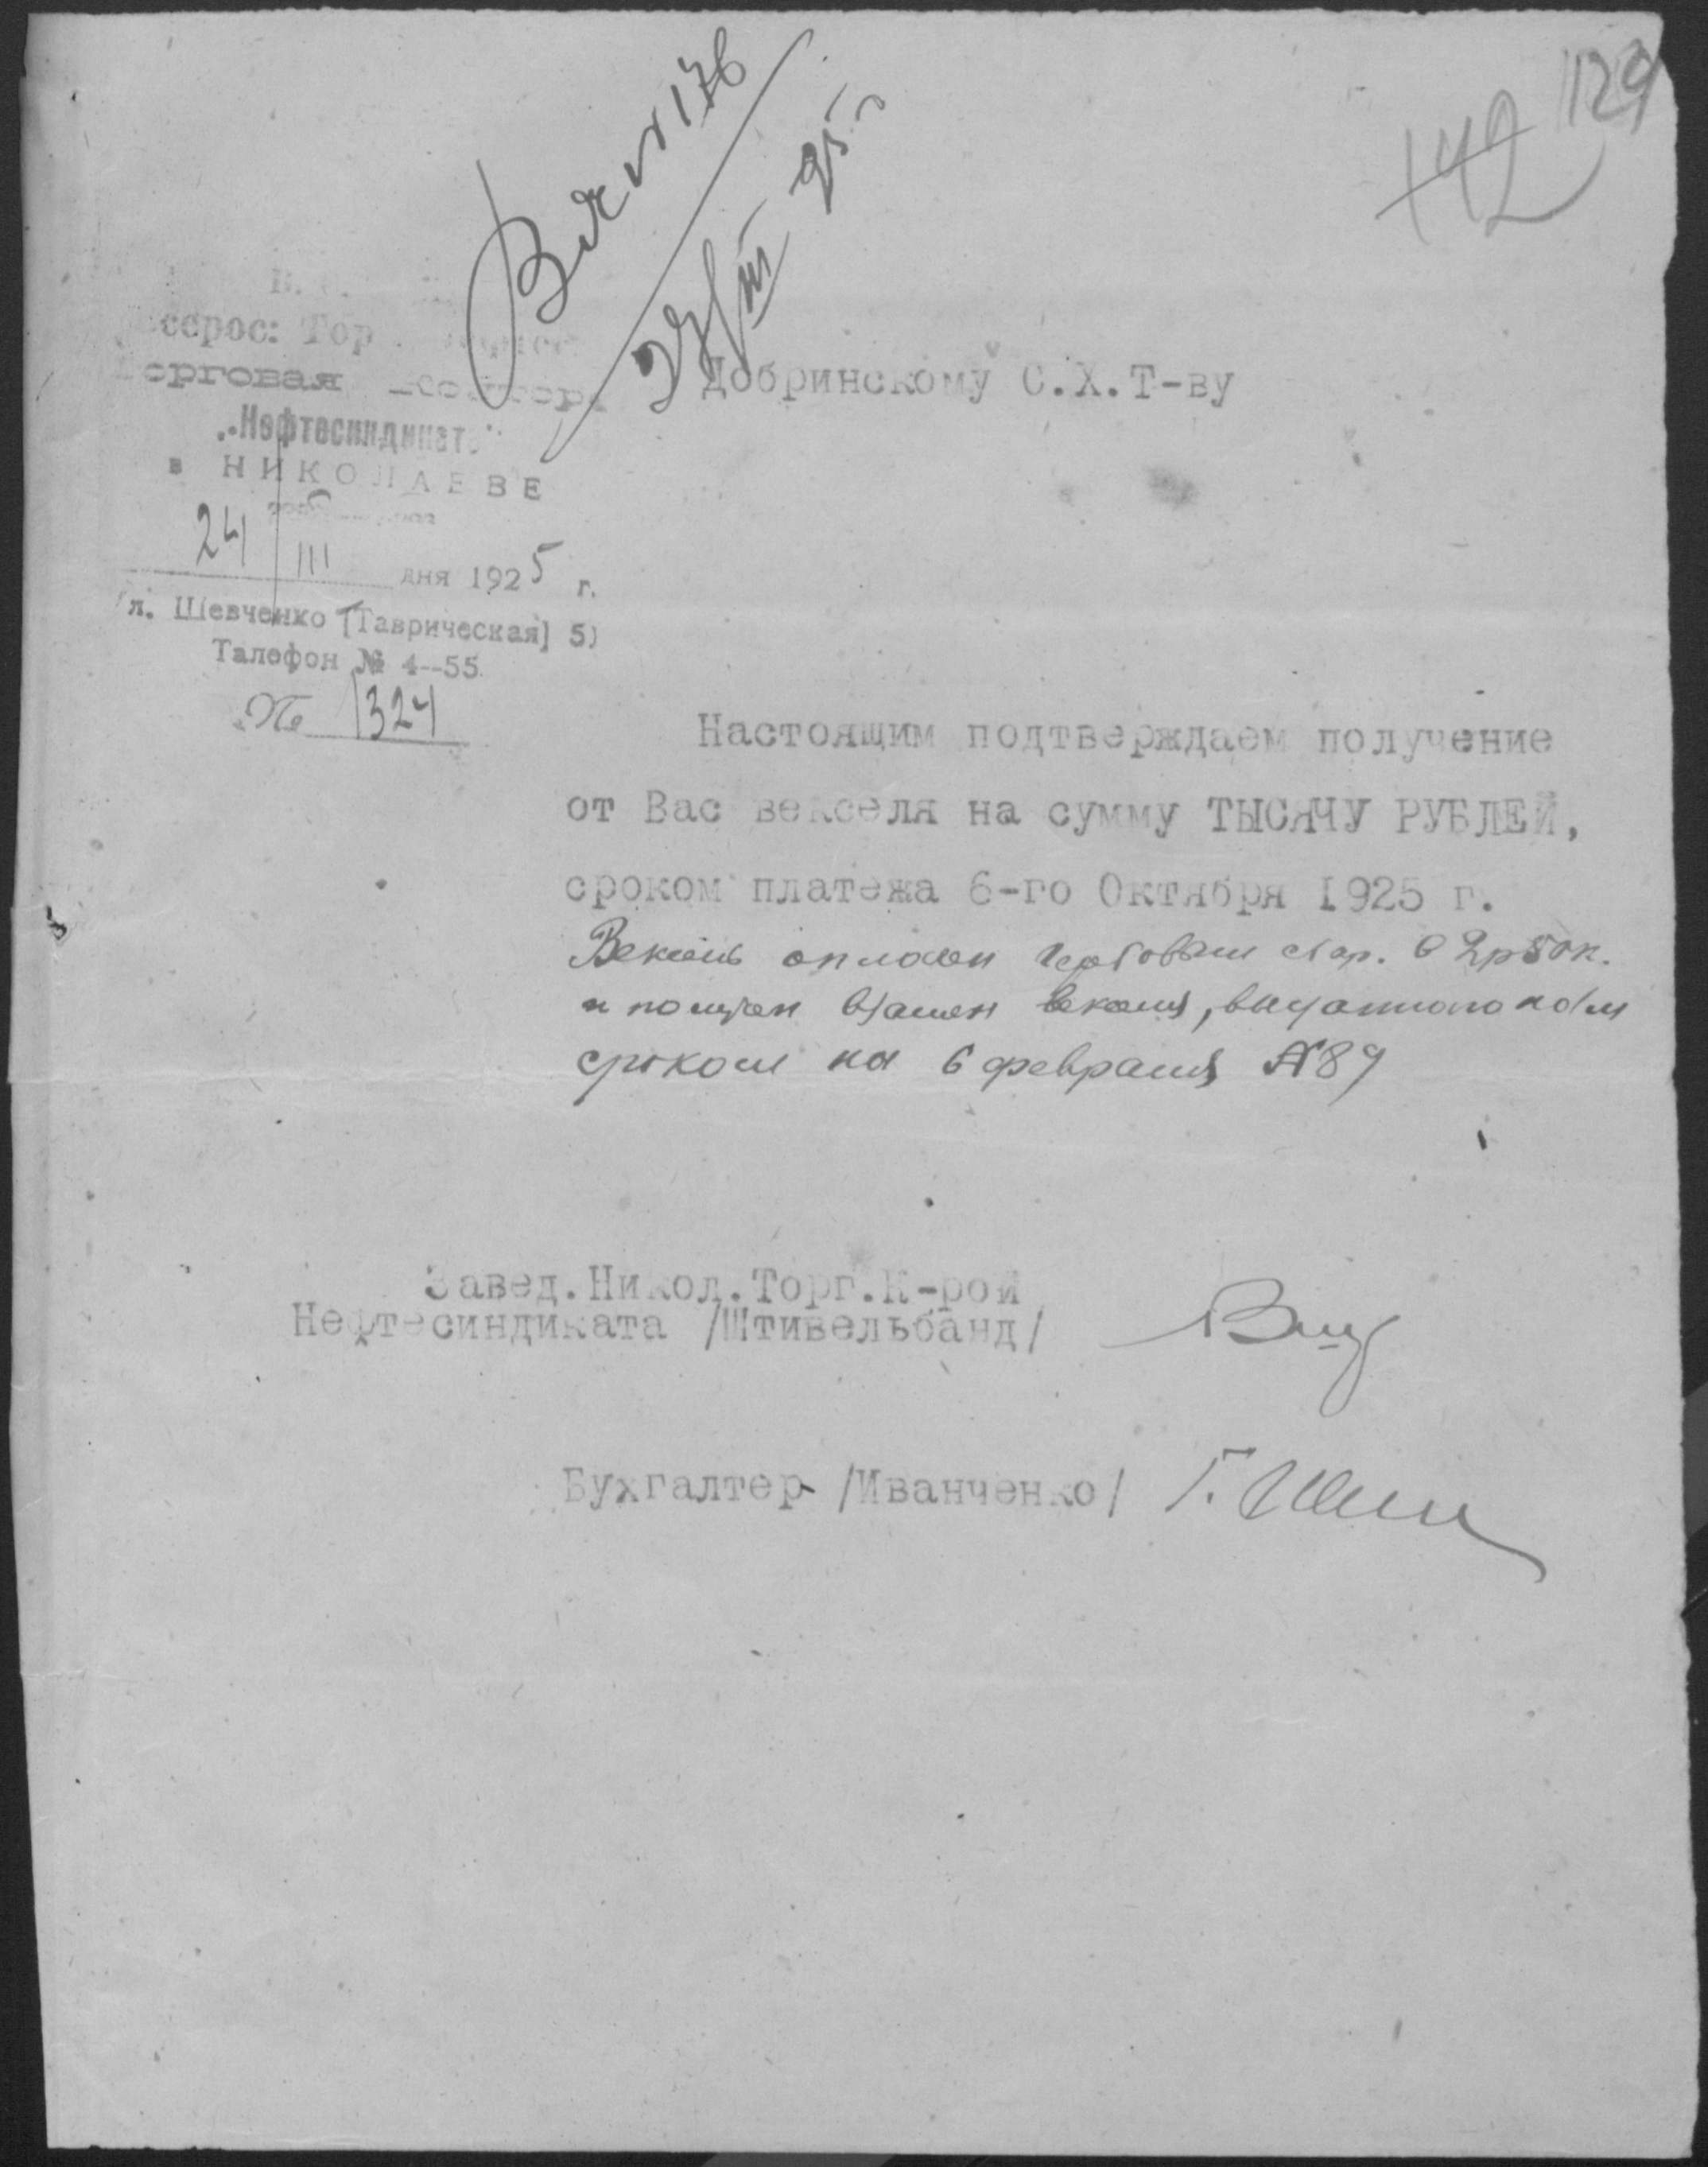 129
142
Вх №176
27/III 25 г
Всерос: Тор
Торговая Контора
„Нефтесиндиката"
в НИКОЛАЕВЕ
24/III дня 1925 г.
ул. Шевченко [Таврическая] 5)
Талефон № 4--55
№ 1324
Добринскому С.Х.Т-ву
Настоящим подтверждаем получение
от Вас векселя на сумму ТЫСЯЧУ РУБЛЕЙ,
сроком платежа 6-го Октября 1925 г.
Вексель оплачен гербовым сбор. в 2р50к.
и получен взамен векселя, выданного
сроком на 6 февраля №89
Завед.Никол.Торг.К-рой
Нефтесиндиката /Штивельбанд/
Бухгалтер /Иванченко/